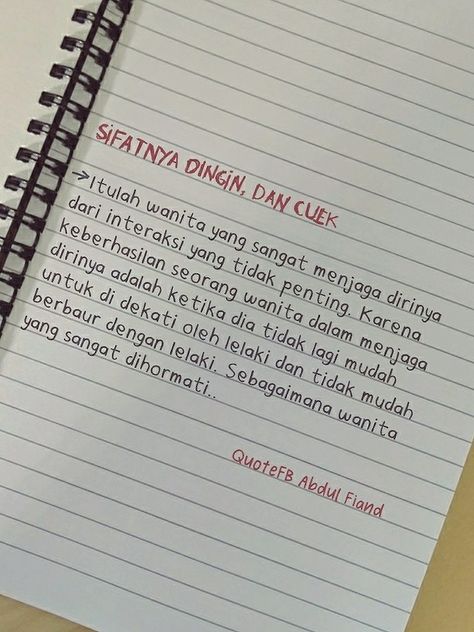 SIFATNYA DINGIN, DAN CUEK
→Itulah wanita yang sangat menjaga dirinya
dari interaksi yang tidak penting. Karena
keberhasilan seorang wanita dalam menjaga
dirinya adalah ketika dia tidak lagi mudah
untuk di dekati oleh lelaki dan tidak mudah
berbaur dengan lelaki. Sebagaimana wanita
yang sangat dihormati..
QuoteFB Abdul Fiand